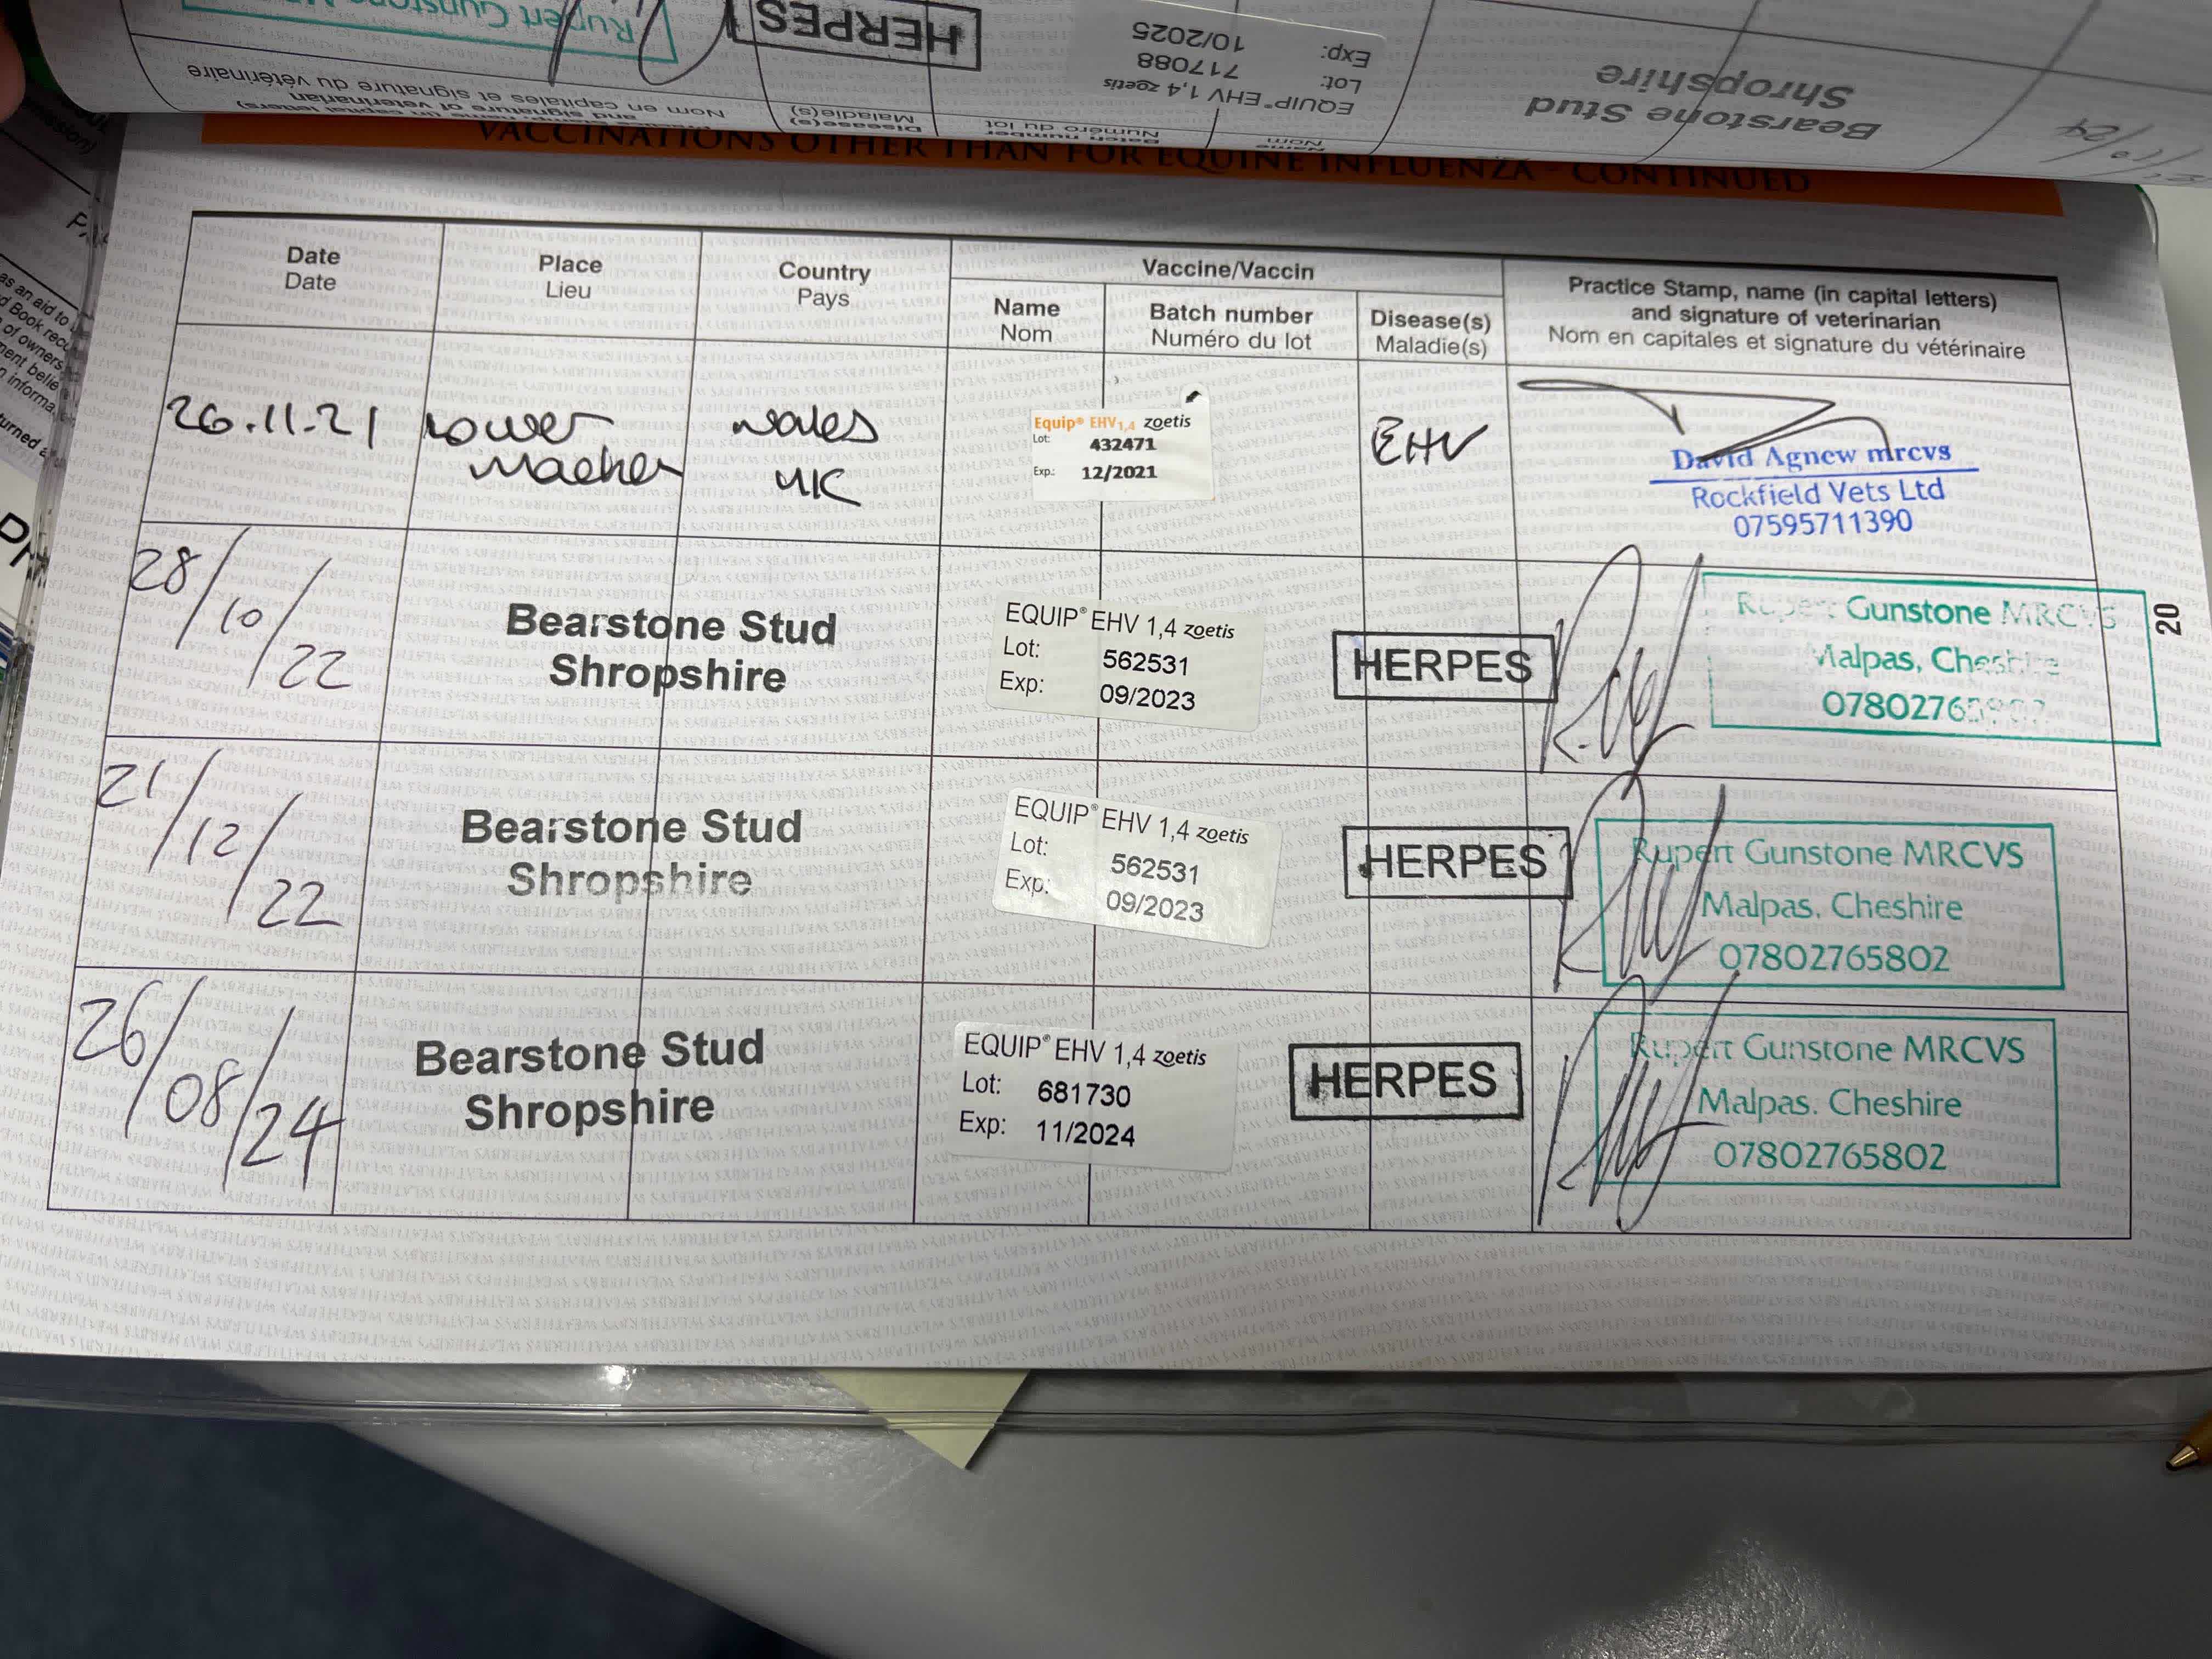 Rupert Gunstone
HERPES
EQUIP® EHV 1,4 zoetis
Lot: 717088
Exp: 10/2025
Bearstone Stud
Shropshire
and signature of veterinarian
Nom en capitales et signature du vétérinaire
Disease(s)
Maladie(s)
Batch number
Numéro du lot
Name
Nom
VACCINATIONS OTHER THAN FOR EQUINE INFLUENZA - CONTINUED
Date
Date
Place
Lieu
Country
Pays
Vaccine/Vaccin
Name
Nom
Batch number
Numéro du lot
Disease(s)
Maladie(s)
Practice Stamp, name (in capital letters)
and signature of veterinarian
Nom en capitales et signature du vétérinaire
26.11.21
Lower
Machen
Wales
UK
Equip® EHV1,4 zoetis
Lot: 432471
Exp.: 12/2021
EHV
David Agnew mrcvs
Rockfield Vets Ltd
07595711390
28/10/22
Bearstone Stud
Shropshire
EQUIP® EHV 1,4 zoetis
Lot: 562531
Exp: 09/2023
HERPES
Rupert Gunstone MRCVS
Malpas, Cheshire
20
21/12/22
Bearstone Stud
Shropshire
EQUIP® EHV 1,4 zoetis
Lot: 562531
Exp: 09/2023
HERPES
Rupert Gunstone MRCVS
Malpas, Cheshire
07802765802
26/08/24
Bearstone Stud
Shropshire
EQUIP® EHV 1,4 zoetis
Lot: 681730
Exp: 11/2024
HERPES
Rupert Gunstone MRCVS
Malpas, Cheshire
07802765802